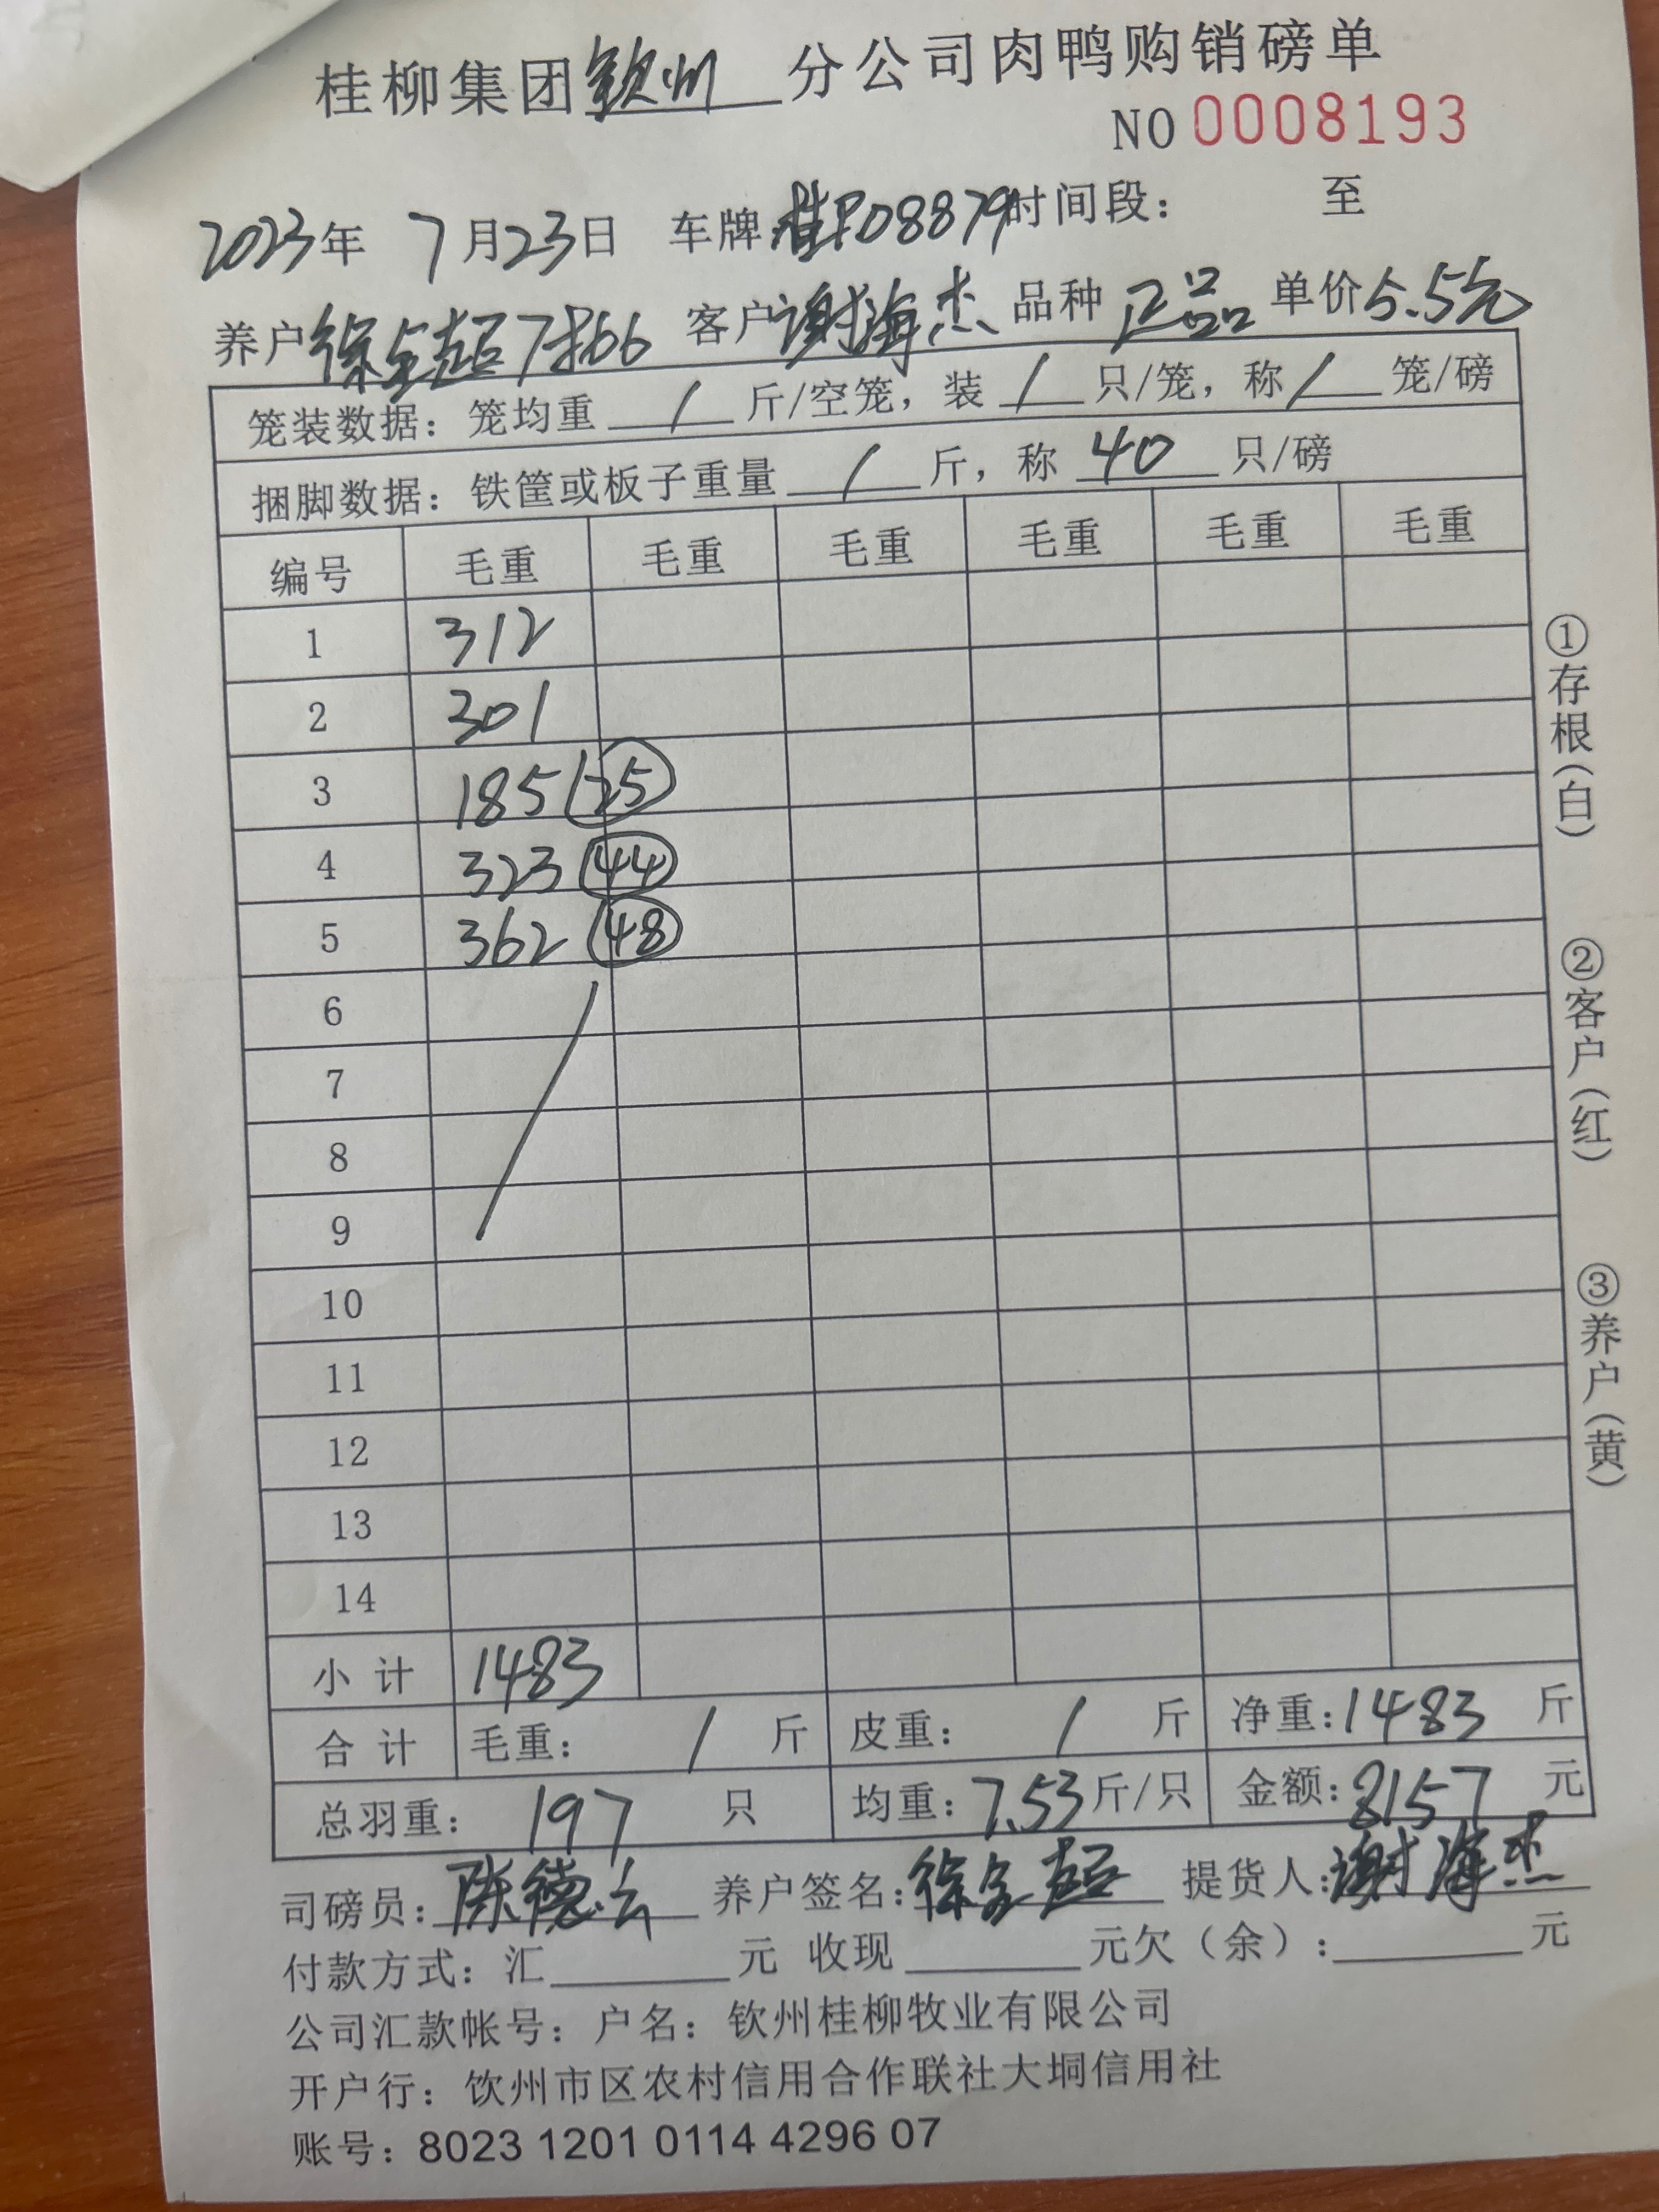 桂柳集团钦州分公司肉鸭购销磅单
NO 0008193
2023年 7月23日 车牌桂P08879时间段: 至
养户徐全超7批66 客户谢海杰 品种正品 单价5.5元
笼装数据: 笼均重 / 斤/空笼, 装 / 只/笼, 称 / 笼/磅
捆脚数据: 铁筐或板子重量 / 斤, 称 40 只/磅
编号 毛重 毛重 毛重 毛重 毛重 毛重
1 312
2 301
3 185 (25)
4 323 (44)
5 362 (48)
6
7
8
9
10
11
12
13
14
小计 1483
合计 毛重: / 斤 皮重: / 斤 净重:1483 斤
总羽重: 197 只 均重:7.53斤/只 金额:8157 元
司磅员:陈德云 养户签名:徐全超 提货人:谢海杰
付款方式: 汇 元 收现 元欠(余): 元
公司汇款帐号: 户名: 钦州桂柳牧业有限公司
开户行: 饮州市区农村信用合作联社大垌信用社
账号: 8023 1201 0114 4296 07
①存根(白)
②客户(红)
③养户(黄)